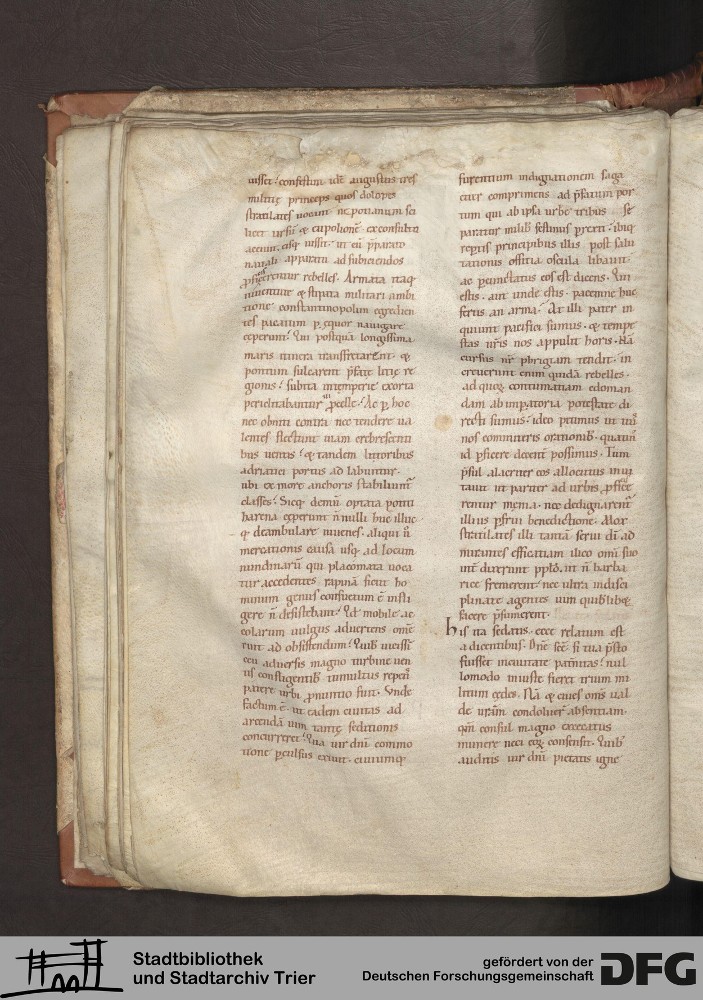 iusset: confestim idē augustus tres
militię principes quos dolopes
stratilates uocant nepotianum sci
licet ursū & eupolionē exconsulto
acciuit. eisq; iussit. ut cū p̄parato
nauali apparatu ad subiciendos
proficerentur rebelles. Armata itaq;
iuuentute & stipata militari ambi
tione constantinopolim egredien
tes placitum p̱ ęquor nauigare
ceperunt. Cū postquā longissima
maris itinera transfretarent. &
pontum sulcarent p̄fatę licię re
gionis: subita intemperie exorta
periclitabantur procellę. Ac p̱ hoc
nec obniti contra nec tendere ua
lentes flectunt uiam crebrescenti
bus uentis: & tandem littoribus
adriatici portus ad labuntur.
ubi ex more anchoris stabiliunt
classes. Sicq; demū optata potiti
harena ceperunt ñ nulli huc illuc
q; deambulare iuuenes. aliqui ñ
mercationis causa usq; ad locum
nundinarū qui placomata uoca
tur accedentes rapinā sicut ho
minum genus consuetum ē infli
gere ñ desistebant. Id mobile ac
colarum uulgus aduertens omē
ruit ad obsistendum. Quib; uicissī
ceu aduersis magno turbine uen
tis confligentib; tumultus repen̄
patere urbi pronuntio fuit. Unde
factum ē ut eadem ciuitas ad
arcendā uim tantę seditionis
concurreret. Qua uir dn̄i commo
tione p̱culsus exiuit. ciuiumq;
furentium indignationem saga
citer comprimens ad p̄fatum por
tum qui ab ipsa urbe tribus se
paratur milib; festinus p̱rexit: ibiq;
repertis principibus illis post salu
tationis officia oscula libauit
ac p̱cunctatus eos est dicens. Qui
estis. aut unde estis. pacemne huc
fertis an arma? At illi pater in
quiunt pacifici sumus. & tempe
stas uestris nos appulit horis. Nā
cursus nr̄ phrigiam tendit. in
creuerunt enim quidā rebelles.
ad quorum contumatiam edoman
dam ab imp̱atoria potestate di
recti sumus: ideo petimus ut uris
nos commuteris orationib; quatin
id p̱ficere decenti possimus. Tum
p̄sul alacriter eos allocutus inui
tauit ut pariter ad urbis proficisce
rentur męnia. nec dedignarent
illius p̄frui benedictione. Mox
stratilates illi tantā serui dī ad
mirantes efficatiam ilico omī suo
int̄ dixerunt pplō. ut ñ barba
rice fremerent: nec ultra indisci
plinate agentes uim quiblibet
facere p̄sumerent.
His ita sedatis. ecce relatum est
a dicentibus. Dn̄e scē si tua p̄sto
fuisset incuitate patr̄nitas: nul
lomodo iniuste fieret trium mi
litum cędes. Nā & ciues omīs ual
de uram condoluer̄ absentiam.
qm̄ consul magno excecatus
munere neci eorum consensit. Quib;
auditis uir dn̄i pietatis igne
Stadtbibliothek
und Stadtarchiv Trier
gefördert von der
Deutschen Forschungsgemeinschaft
DFG